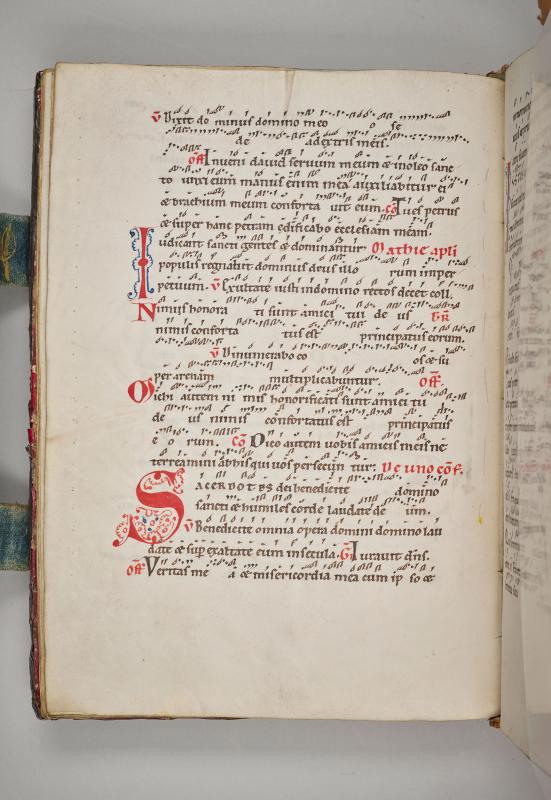 v̄ Dixit do minus domino meo o se
de adextris meis.
off̄ Inueni dauid seruum meum & inoleo sanc
to unxi eum manus enim mea auxiliabitur ei
& brachium meum conforta uit eum. cō Tu es petrus
& super hanc petram edificabo ecclesiam meam.
Iudicant sancti gentes & dominantur Mathie apli
populis regnabit dominus deus illo rum inper
petuum. v̄ Exultate iusti indomino rectos decet coll.
Nimis honora ti sunt amici tui de us GR
nimis conforta tus est principatus eorum.
v̄ Dinumerabo eo os & su
per arenam multiplicabuntur. off̄.
Michi autem ni mis honorificati sunt amici tui
de us nimis confortatus est principatus
e o rum. cō Dico autem uobis amicis meis ne
terreamini abhis qui uos persecun tur: De uno cōf.
SACERDOTES dei benedicite domino
sancti & humiles corde laudate de um.
v̄ Benedicite omnia opera domini domino lau
date & sup exaltate eum insecula. G Iurauit dn̄s.
off̄ Veritas me a & misericordia mea cum ip so &